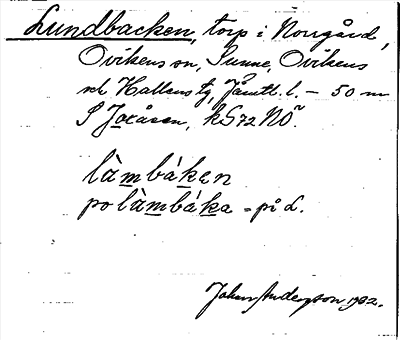 Lundbacken, torp i Norrgård,
Ovikens sn, Sunne, Ovikens
och Hallens tg, Jämtl. l. – 50 m
S Joxåsen, kS72NÖ.
làmbáken
po làmbáka = på L.
Johan Anderson 1932.